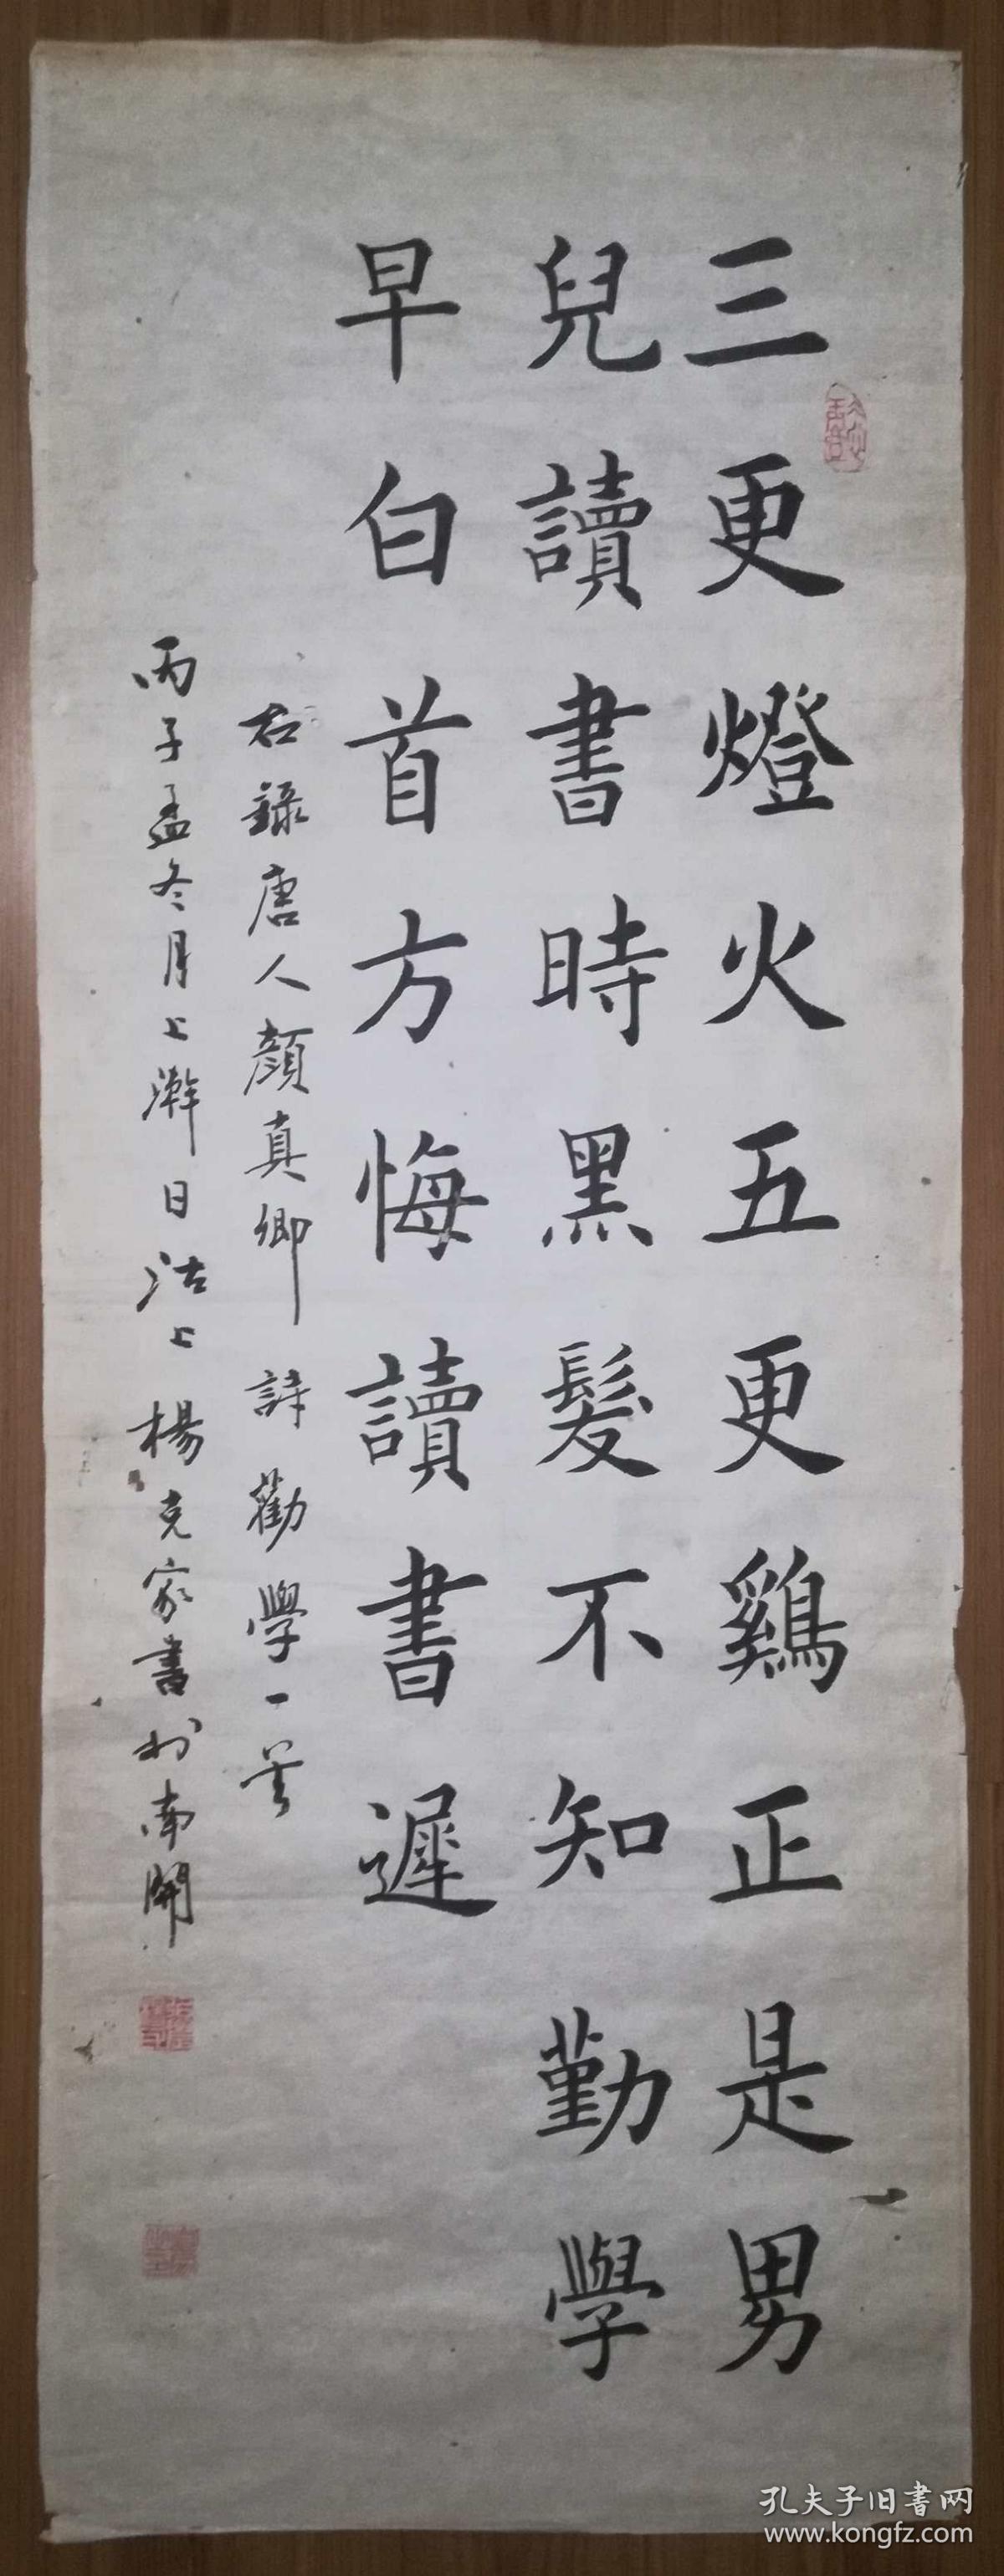 三更燈火五更鷄正是男
兒讀書時黑髮不知勤學
早白首方悔讀書遲
右錄唐人顏真卿詩勸學一首
丙子孟冬月上澣日沽上楊克家書於南開
孔夫子旧书网
www.kongfz.com